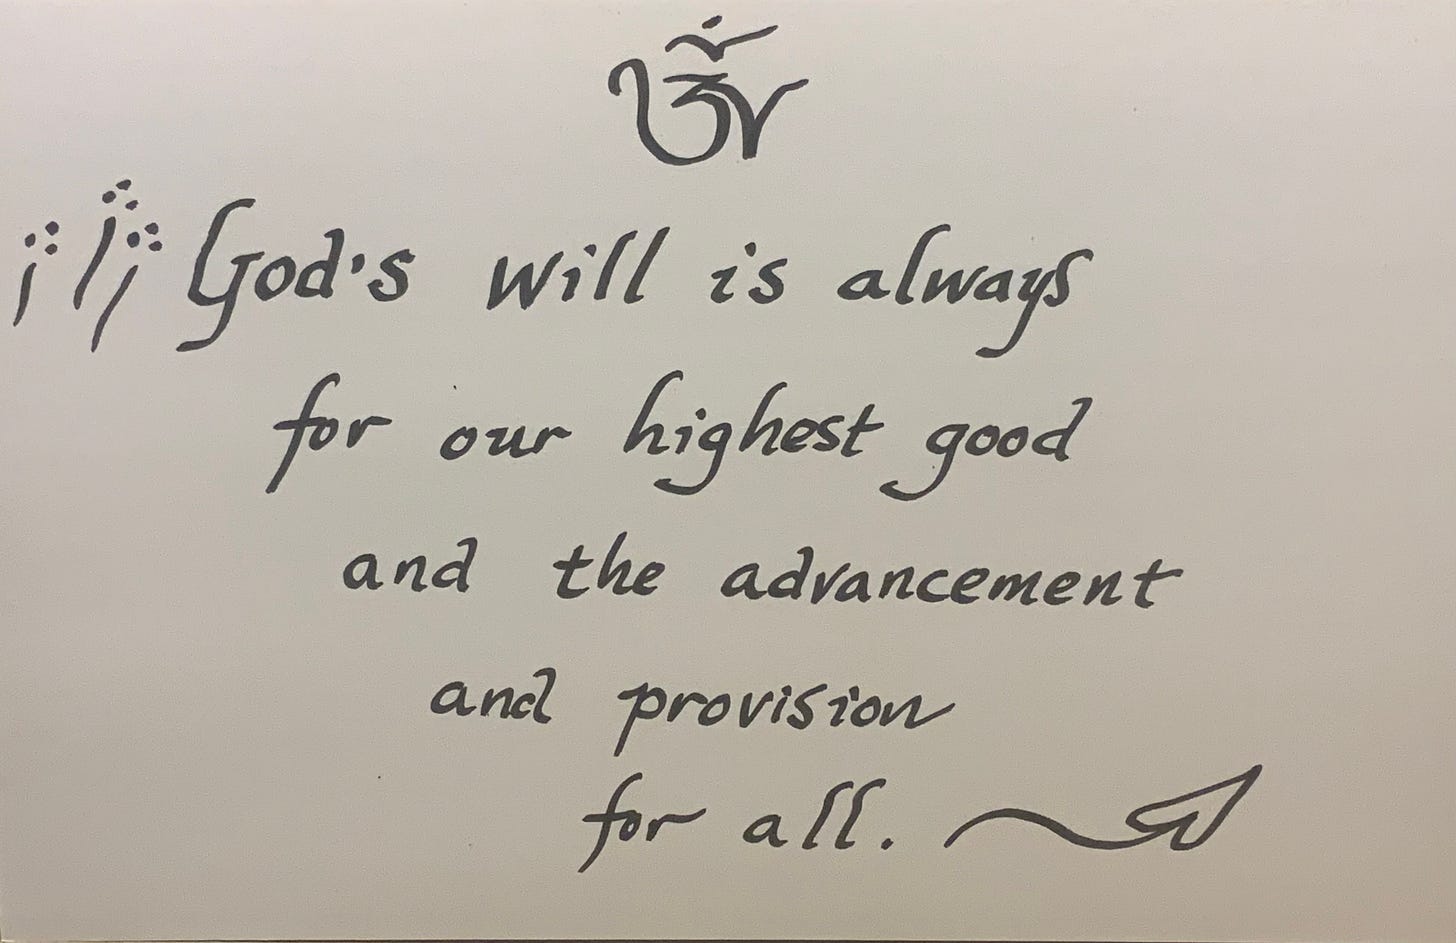 ॐ
God's will is always
for our highest good
and the advancement
and provision
for all.